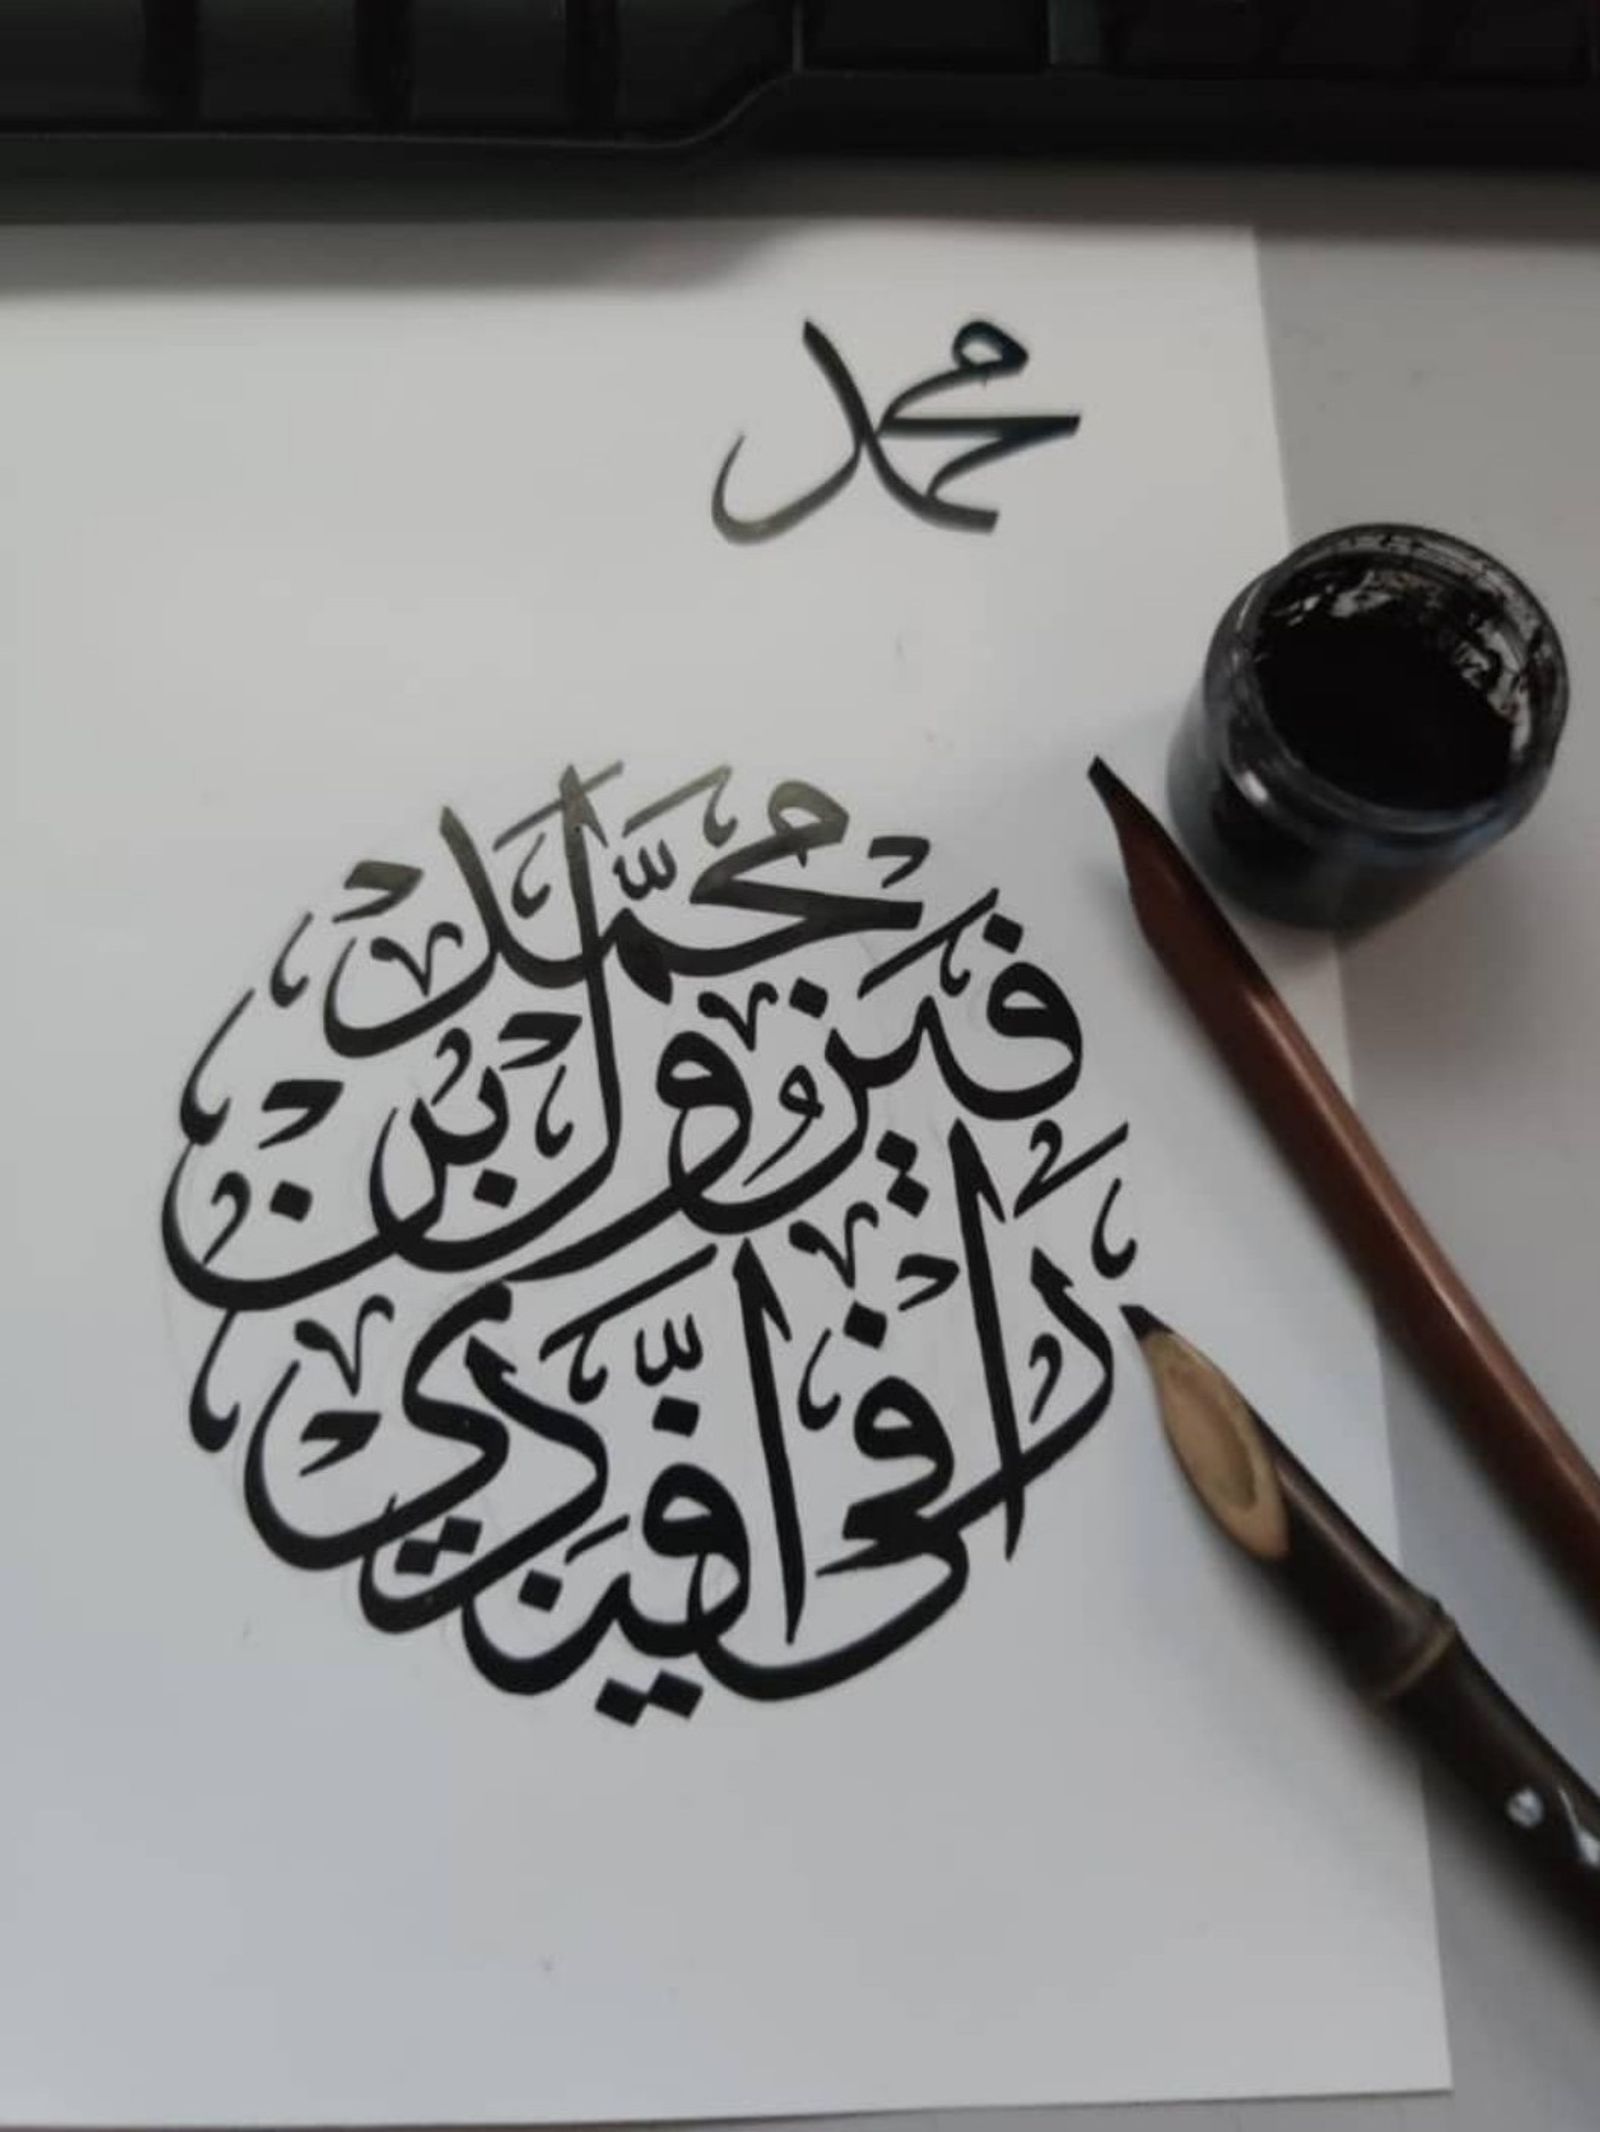 محمد
محمّد
فيزول بن
رافعى افّيندي